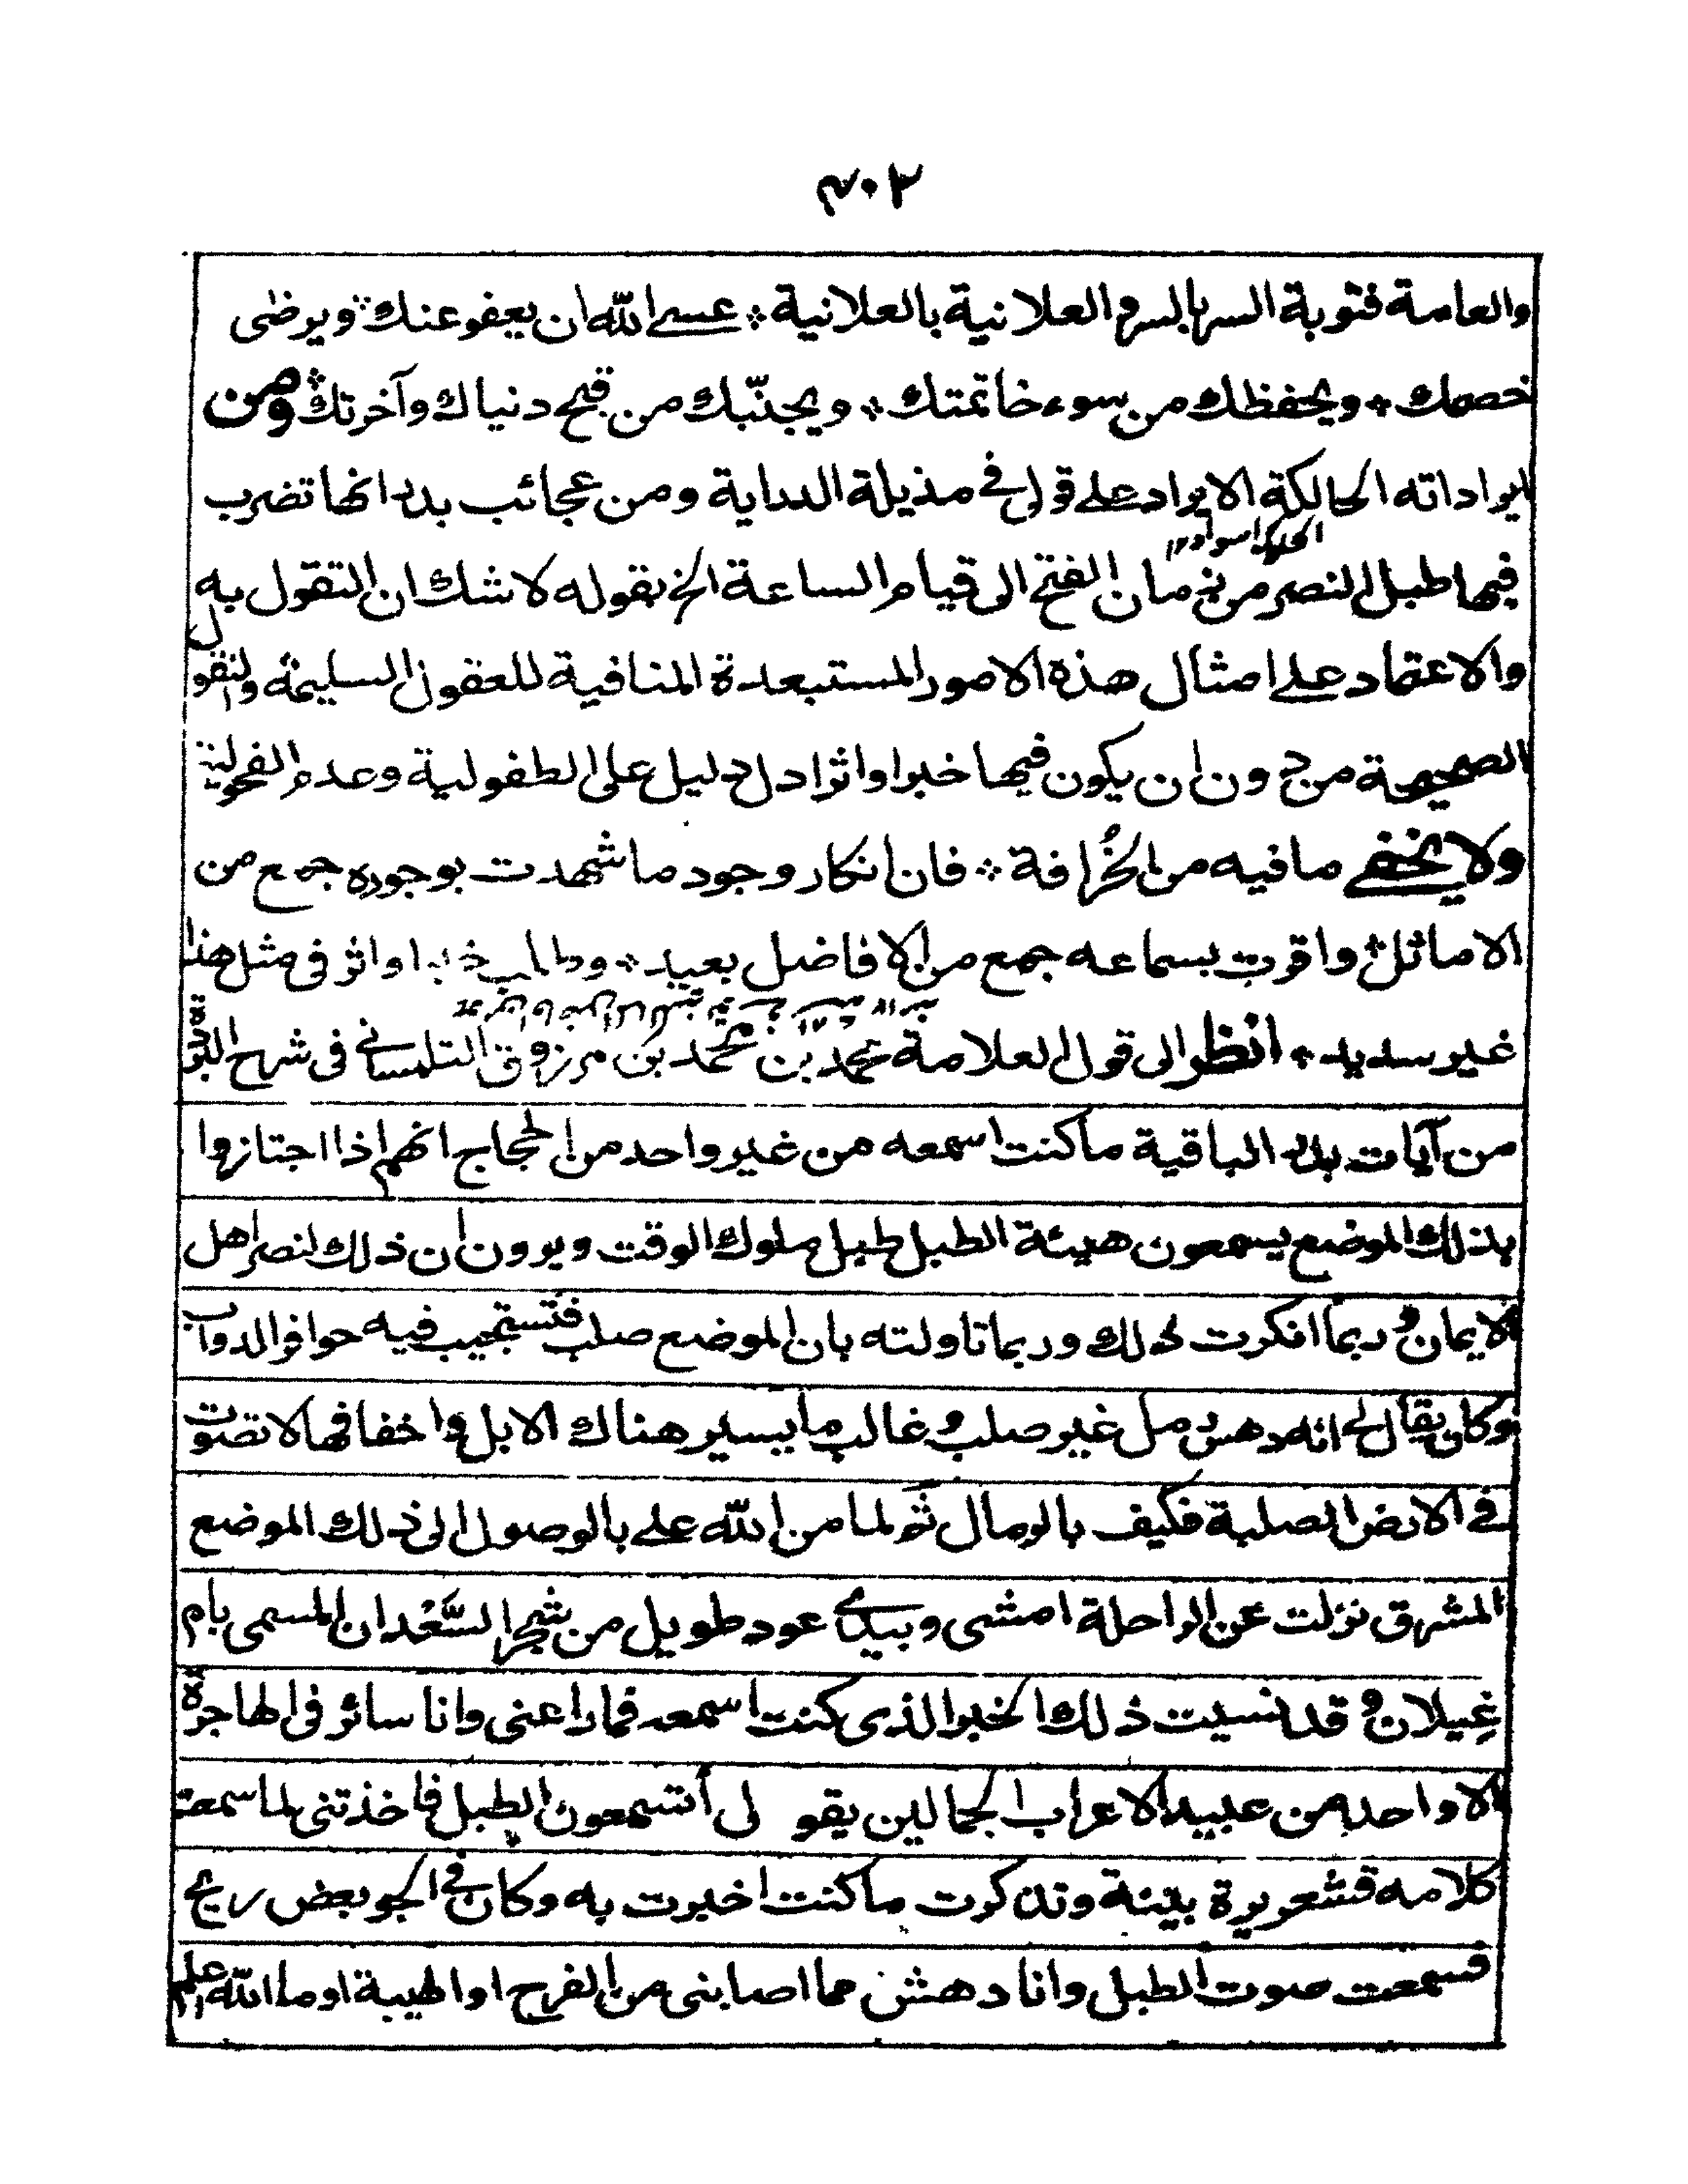 ٢٠٣
والعامة فتوبة السر بالسر والعلانية بالعلانية ٭ عسى الله ان يعفو عنك ٭ ويرضى
خصمك ٭ ويحفظك من سوء خاتمتك ٭ ويجنّبك من قبح دنياك وآخرتك ٭ ومن
ايراداته الحالكة الايراد على قولى فى مذيلة الدراية ومن عجائب بدر انها تضرب
فيها طبل النصر من زمان الفتح الى قيام الساعة الخ بقوله لا شك ان التقول به
والاعتماد على امثال هذه الامور المستبعدة المنافية للعقول السليمة والنقول
الصحيحة من دون ان يكون فيها خبرا واثرا دل دليل على الطفولية وعدم الفحولية
ولا يخفى ما فيه من الخُرافة ٭ فان انكار وجود ما شهدت بوجوده جمع من
الاماثل ٭ واقرت بسماعه جمع من الافاضل بعيد ٭ وطلب خبر او اثر فى مثل هذا
غير سديد ٭ انظر الى قول العلامة محمد بن محمد بن مرزوق التلمسانى فى شرح البردة
من آيات بدر الباقية ما كنت اسمعه من غير واحد من الحجاج انهم اذا اجتازوا
بذلك الموضع يسمعون هيئة الطبل طبل ملوك الوقت ويرون ان ذلك لنصر اهل
الايمان وربما انكرت ذلك وربما تاولته بان الموضع صلب فتستجيب فيه حوافر الدواب
وكان يقال لى انه دهس رمل غير صلب وغالب ما يسير هناك الابل واخفافها لا تصوت
فى الارض الصلبة فكيف بالرمال ثم لما من الله على بالوصول الى ذلك الموضع
المشرق نزلت عن الراحلة امشى وبيدى عود طويل من شجر السَّعْدان المسمى بام
غيلان وقد نسيت ذلك الخبر الذى كنت اسمعه فما راعنى وانا سائر فى الهاجرة
الا واحد من عبيد الاعراب الجمالين يقو لى أتسمعون الطبل فاخذتنى لما سمعت
كلامه قشعريرة بينة وتذكرت ما كنت اخبرت به وكان فى الجو بعض ريح
فسمعت صوت الطبل وانا دهش مما اصابنى من الفرح او الهيبة او ما الله اعلم